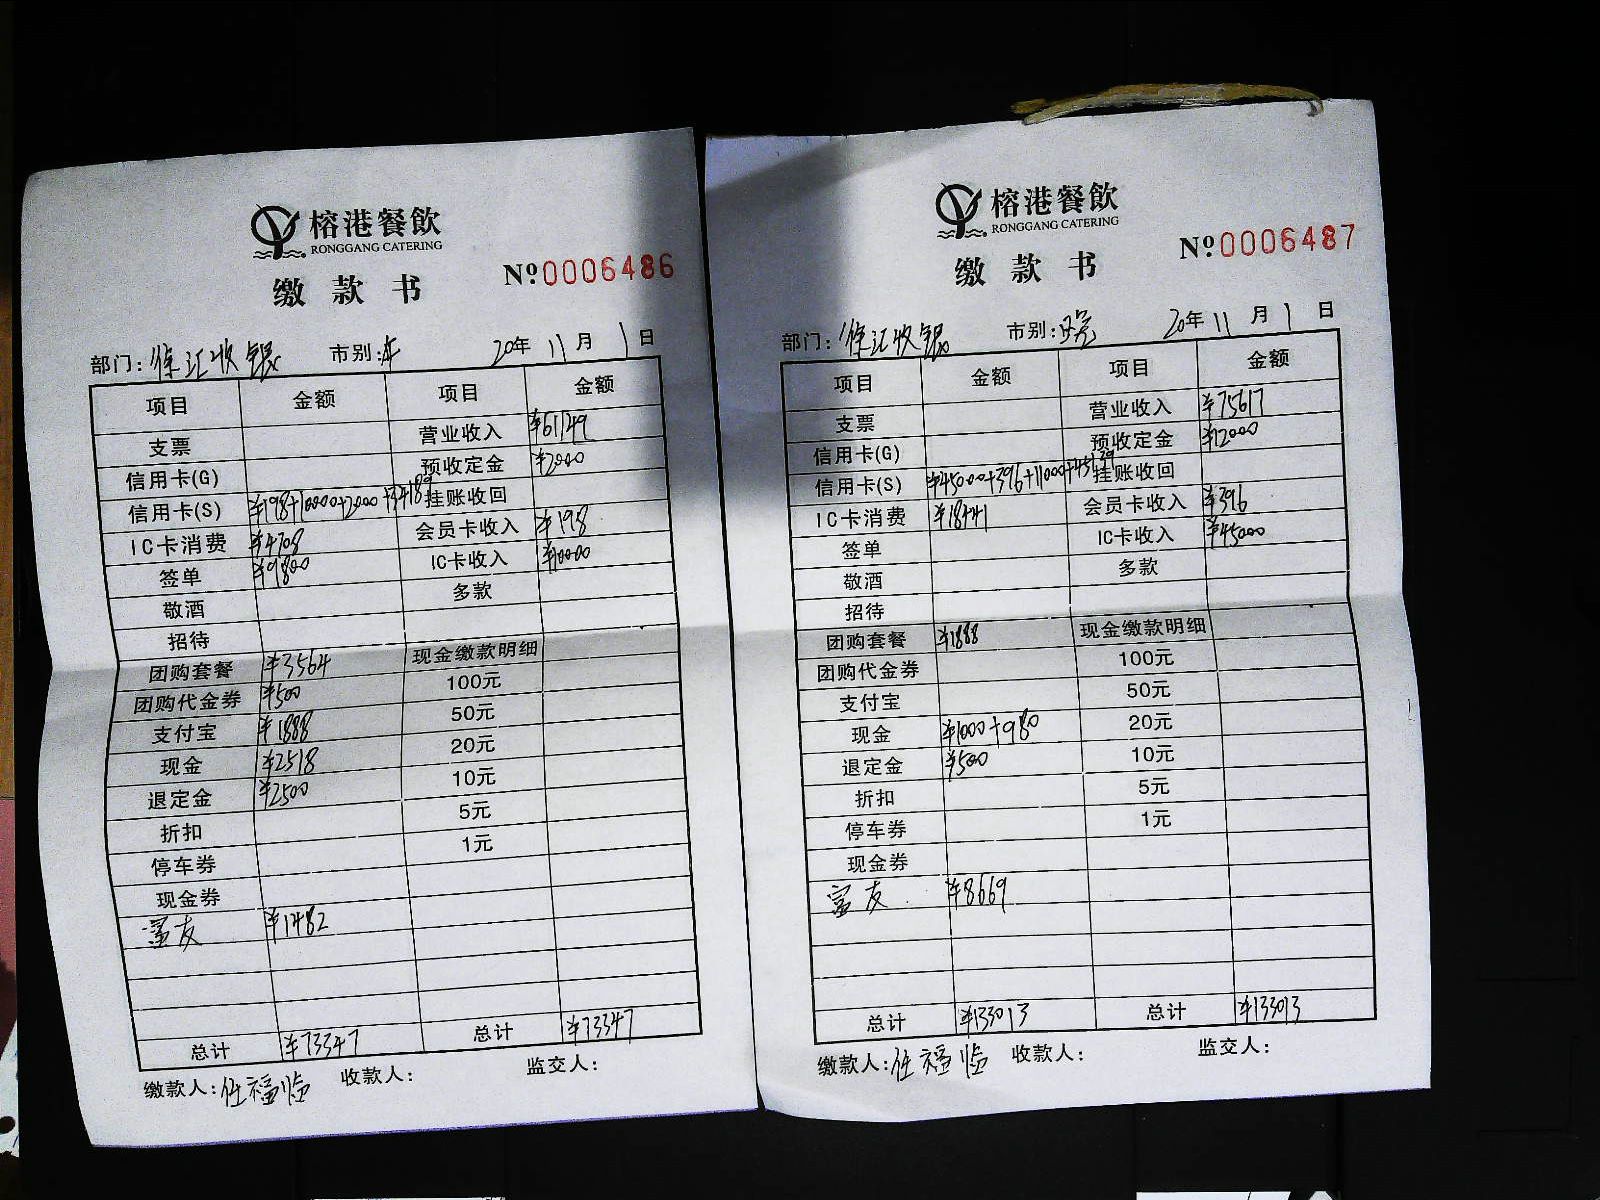 榕港餐飲
RONGGANG CATERING
缴款书
№0006486
部门:徐汇收银 市别:午 20年 11月 1日
项目 金额 项目 金额
支票 营业收入 ¥61149
信用卡(G) 预收定金 ¥2000
信用卡(S) ¥198+10000+2000+34189 挂账收回
IC卡消费 ¥4708 会员卡收入 ¥198
签单 ¥9800 IC卡收入 ¥10000
敬酒 多款
招待
团购套餐 ¥3564 现金缴款明细
团购代金券 ¥500 100元
支付宝 ¥1888 50元
现金 ¥2518 20元
退定金 ¥2500 10元
折扣 5元
停车券 1元
现金券
富友 ¥1482
总计 ¥73347 总计 ¥73347
缴款人:任福临 收款人: 监交人:
榕港餐飲
RONGGANG CATERING
缴款书
№0006487
部门:徐汇收银 市别:晚 20年 11月 1日
项目 金额 项目 金额
支票 营业收入 ¥75617
信用卡(G) 预收定金 ¥12000
信用卡(S) ¥45000+396+11000+45139 挂账收回
IC卡消费 ¥18441 会员卡收入 ¥396
签单 IC卡收入 ¥45000
敬酒 多款
招待
团购套餐 ¥1888 现金缴款明细
团购代金券 100元
支付宝 50元
现金 ¥1000+980 20元
退定金 ¥500 10元
折扣 5元
停车券 1元
现金券
富友 ¥8669
总计 ¥133013 总计 ¥133013
缴款人:任福临 收款人: 监交人: